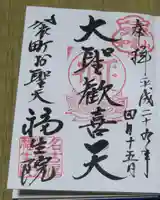 奉拝 平成二十九年
四月十五日
大聖歓喜天
袋町お聖天
福生院